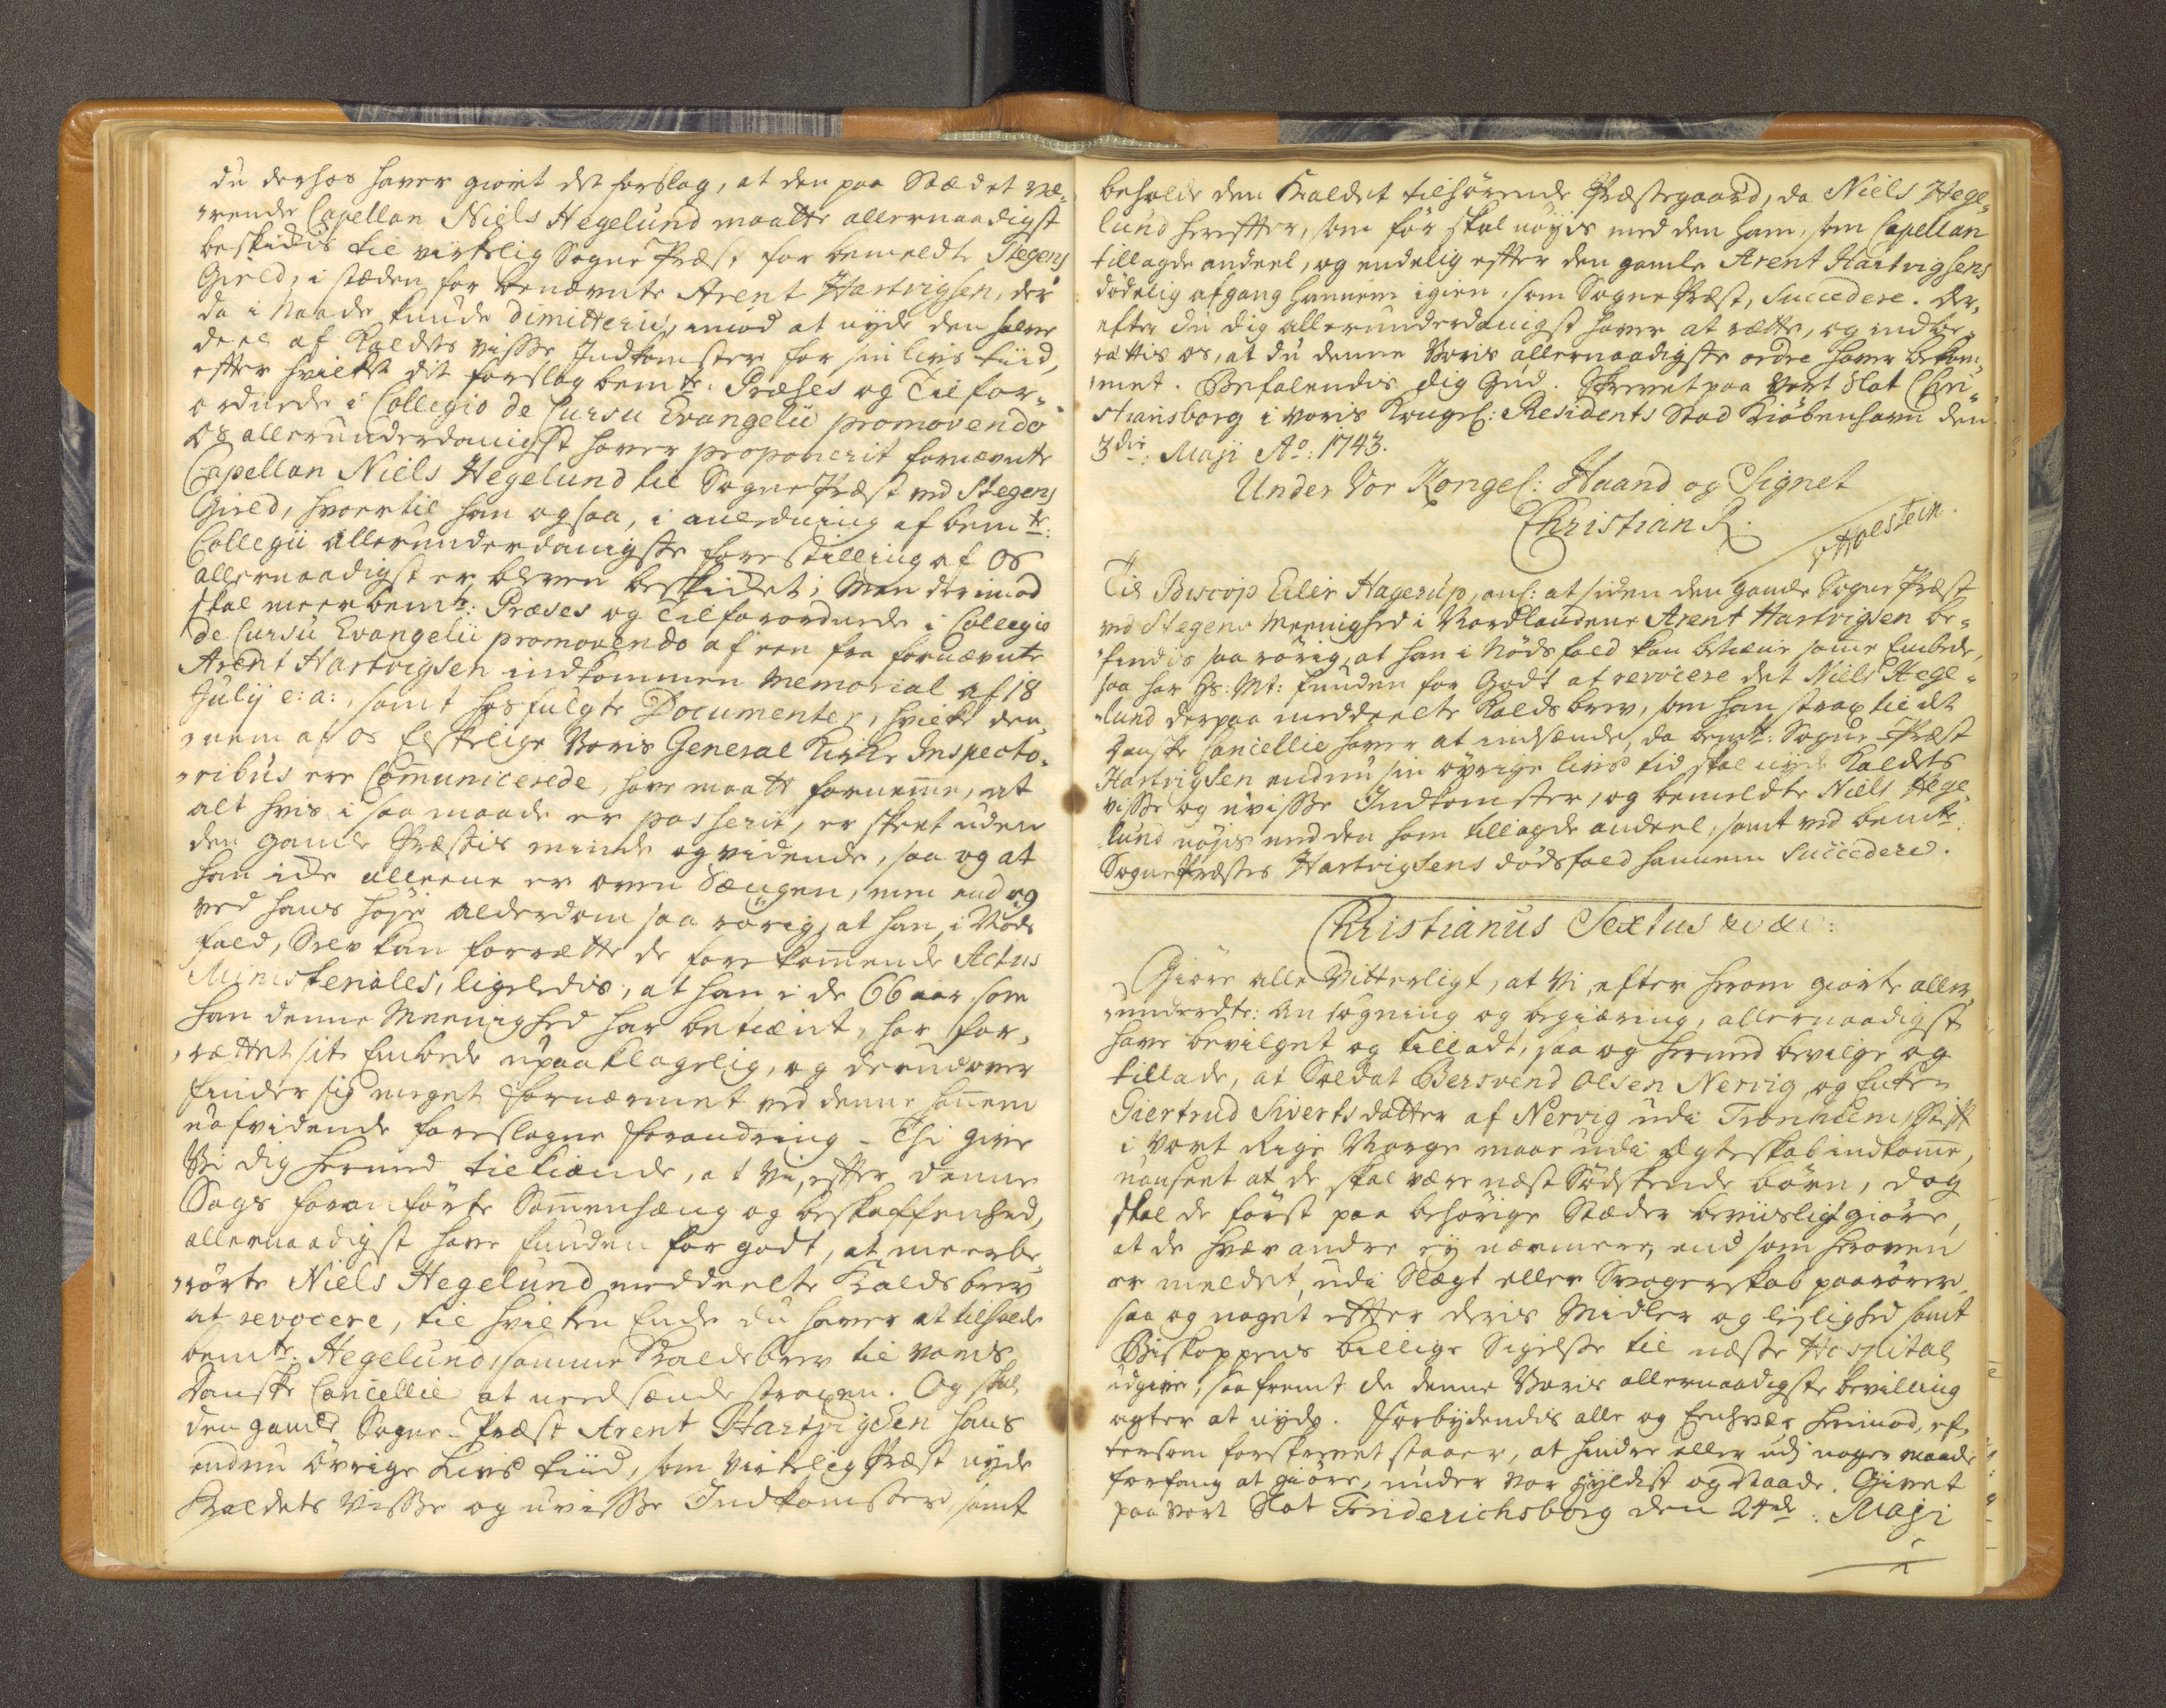 du derhos haver giort det forslag, at den paa Stædet væ„
„rende Capellan Niels Hegelund maatte allernaadigst
beskikkis til virkelig Sogne Præst for bemeldte Stegens
Gield, i stæden for benævnte Arent Hartvigsen, der
da i Naade kunde dimitteris, imod at nyde den halve
deel af Kaldets visse Indkomster for sin livs tiid,
efter hvilket dit forslag bemte: Præses og Tilfor„
ordnede i Collegio de Cursu Evangelii promovendo
os allerunderdanigst haver proponerit fornævnte
Capellan Niels Hegelund til Sogne Præst ved Stegens
Gield, hvortil han ogsaa, i anledning af bemte:
Collegii allerunderdanigste forestilling af os
allernaadigst er bleven beskikket; Men derimod
skal meerbemte: Præses og Tilforordnede i Collegio
de Cursu Evangelii promovendo af een fra fornævnte
Arent Hartvigsen indkommen Memorial af 18
Julij e: a:, samt hosfulgte Documenter, hvilke den„
„nem af os Elskelige Voris General Kirke Inspecto„
„ribus ere Communicerede, have maatt fornemme, at
alt hvis i saa maade er passerit, er skeet uden
den gamle Præstis minde og vidende, saa og at
han icke alleene er oven Sængen, men end og
ved hans høje alderdom saa rørig, at han, i Nøds
fald, Selv kan forrætte de forekommende Actus
Ministeriales, ligeledis, at han i de 66 aar som
han denne Meenighed har betient, har for„
„rættet sit Embede upaaklagelig, og derudover
finder sig meget fornærmet ved denne hannem
uafvidende foreslagne forandring. Thi give
Vi dig hermed tilkiende, at Vi, efter denne
Sags foranførte Sammenhæng og beskaffenhed,
allernaadigst have funden for godt, at meerbe„
„rørte Niels Hegelund meddeelte Kaldsbrev
at revocere, til hvilken Ende du haver at tilholde
bemte: Hegelund, samme Kaldsbrev til voris
Danske Cancellie at needsænde straxen. Og skal
den gamle Sogne-Præst Arent Hartvigsen hans
endnu övrige Livs tiid, som virkelig Præst nyde
Kaldets visse og uvisse Indkomster, samt
beholde den Kaldet tilhörende Præstegaard, da Niels Hege„
lund herefter, som för skal nöyes med den ham, som Capellan
tillagde andeel, og endelig efter den gamle Arent Hartvigsens
dödelig afgang hannem igien, som Sogne Præst, Succedere. Der„
efter du dig allerunderdanigst haver at rætte, og indbe„
rættis os, at du denne Voris allernaadigste ordre haver bekom„
„met. Befalendis dig Gud. Skrevet paa Vort Slot Chri„
stiansborg i voris Kongel: Residents Stad Kiöbenhavn den
3die: Maji Ao: 1743.
Under Vor Kongel: Haand og Signet
Christian R.
Holstein.
Til Biscop Eiler Hagerup, anl: at siden den gamle Sogne Præst
ved Stegens Meenighed i Nordlandene Arent Hartvigsen be„
„findes saa rörig, at han i Nöds fald kan betiene samme Embede,
saa har Hs: Mt: funden for Godt at revocere det Niels Hege„
„lund derpaa meddeelte Kalds brev, som han strax til det
Danske Cancellie haver at indsænde, da bemte: Sogne-Præst
Hartvigsen endnu sin övrige livs tid skal nyde Kaldets
visse og uvisse Indkomster, og bemeldte Niels Hege„
lund nöjes med den ham tillagde andeel, samt ved bemte:
Sogne Præstes Hartvigsens dödsfald hannem Succedere.
Christianus Sextus &c &c:
Giöre alle Vitterligt, at Vi, efter herom giorte aller„
„underdte: Ansögning og begiæring, allernaadigst
have bevilget og tilladt, saa og hermed bevilge og
tillade, at Soldat Bersvend Olsen Nervig og Enken
Giertrud Siverts datter af Nervig udi Tronhiems Stift
i vort Rige Norge maae udi ægteskab indkomme,
uanseet at de skal være næst Södskende börn, dog
skal de först paa behörige Stæder beviisligt giöre,
at de hver andre ey nærmere, end som heroven
er meldet, udi Slægt eller Svogerskab paarörer,
saa og noget efter deris Midler og lejlighed samt
Biskoppens billige Sigelse til næste Hospital
udgive, saafremt de denne Voris allernaadigste bevilling
agter at nyde. Forbydendis alle og Enhver herimod, ef„
tersom forskrevet staaer, at hindre eller udi nogen maade
forfang at giöre, under vor Hyldist og Naade. Givet
paa vort Slot Friderichsborg den 24de: Maji